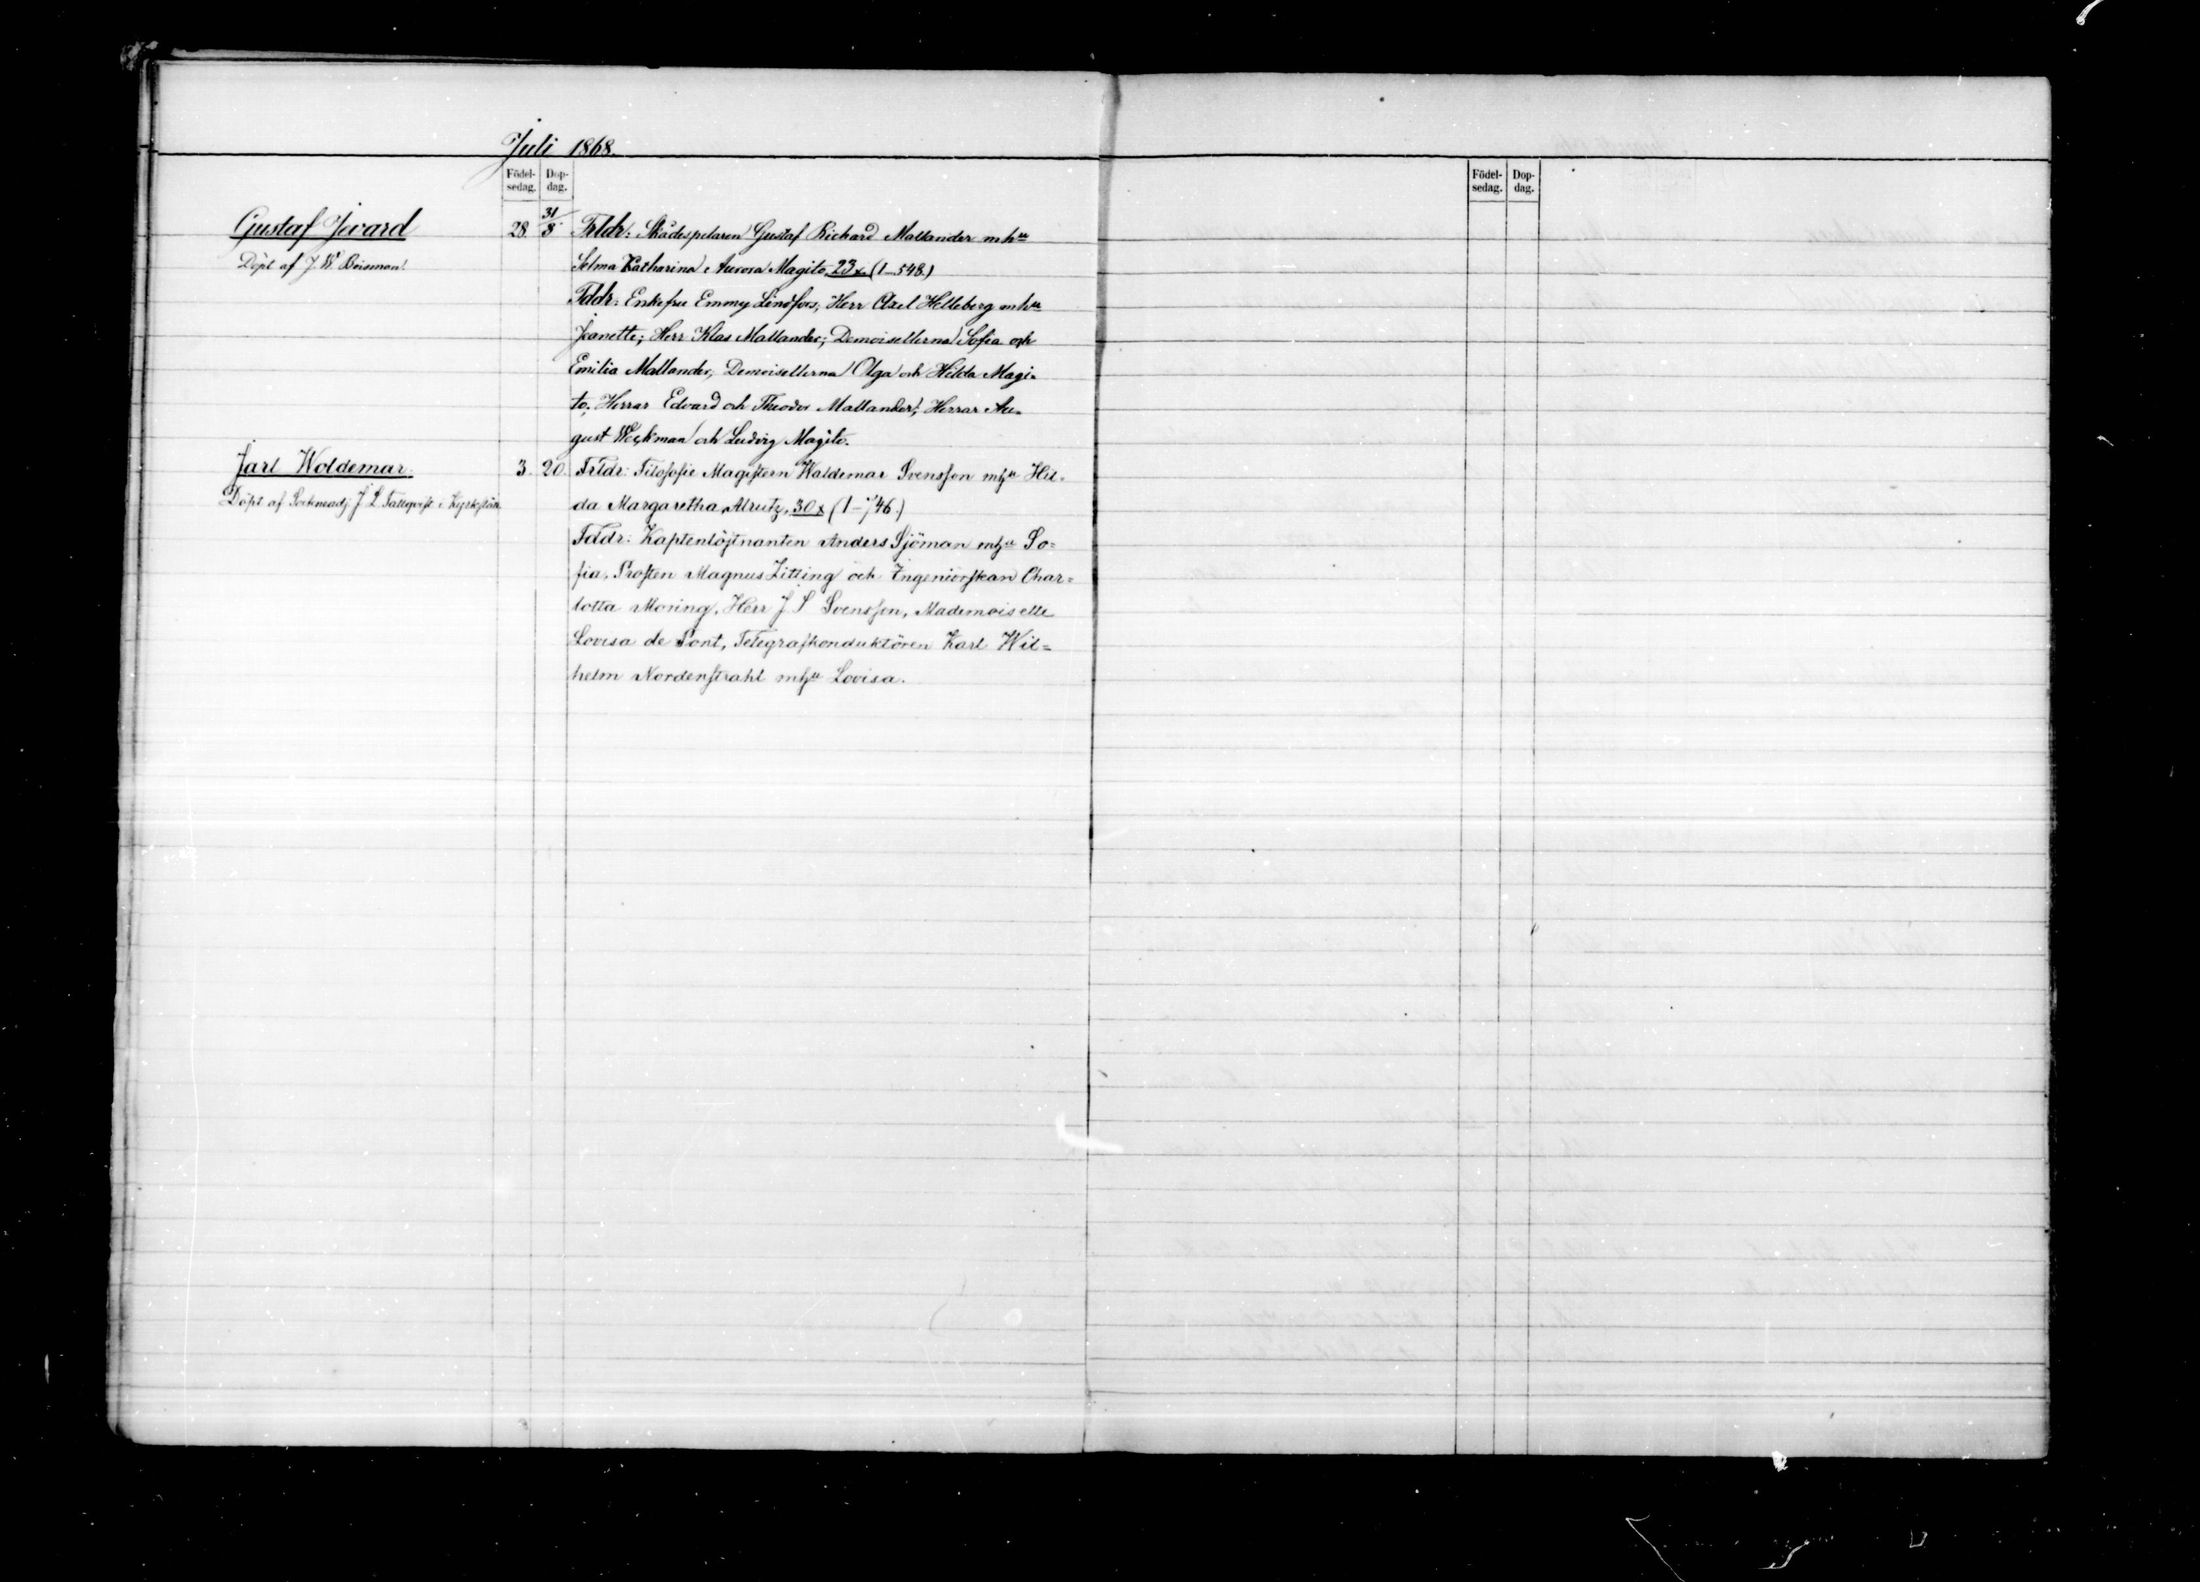 Juli 1868.
Födel-
sedag.
Dop-
dag.
Födel-
sedag.
Dop-
dag.
Gustaf Ivard
Döpt af J. W. Boisman.
28. 31/8 Frldr: Skådespelaren Gustaf Richard Mallander mhu
Selma Katharina Aurora Magito, 23 x (1–548.)
Fddr: Enkefru Emmy Lindfors; Herr Axel Helleberg mhu
Jeanette; Herr Klas Mallander; Demoisellerna Sofia och
Emilia Mallander; Demoisellerna Olga och Hilda Magi-
to; Herrar Edvard och Theodor Mallander; Herrar Au-
gust Weckman och Ludvig Magito.
Jarl Woldemar.
Döpt af Sockneadj. J. L. Tallqvist i Kyrkslätt.
3. 20. Frldr: Filosofie Magistern Waldemar Svensson mhu Hil-
da Margaretha Alrutz, 30 x
Fddr: Kaptenlöjtnanten Anders Sjöman mhu So=
fia, Prosten Magnus Litzing och Ingeniörskan Char=
lotta Moring, Herr J. S Svensson, Mademoiselle
Lovisa de Pont, Telegrafkonduktören Karl Wil=
helm Nordenstrahl mhu Lovisa.